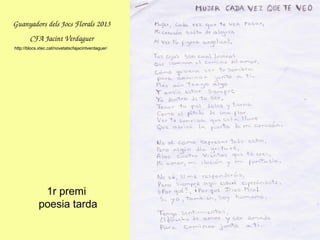 Guanyadors dels Jocs Florals 2013
CFA Jacint Verdaguer
http://blocs.xtec.cat/novetatscfajacintverdaguer/
1r premi
poesia tarda
MUJER CADA VEZ QUE TE VEO
Mujer, cada vez que te veo pasar,
Mi corazón salta de alegría
Al ver tu figura angelical,
Tus ojos son cual luces
Que iluminan el camino del amor,
Cómo quisiera ser tu sombra
para caminar junto a ti.
Más aún tengo algo
Y amor estar siempre
Yo dentro de tu ser,
Tener tu piel dulce y tierna
Como el pétalo de una flor.
Ver tu sonrisa que es la llave
Que abrirá la puerta de mi corazón.
No sé cómo expresar todo esto,
Pero algún día verteré,
Alas cuatro vientos que te amo,
Mi amor, mi ilusión y mi fantasía.
No sé, si me responderás,
Pero siempre aquí estaré esperándote.
¿Por qué?, ¿Por qué Dios mío?
Si yo, también, soy humano.
Tengo sentimientos,
O derecho de amar y ser amado
Para caminar junto a ti.